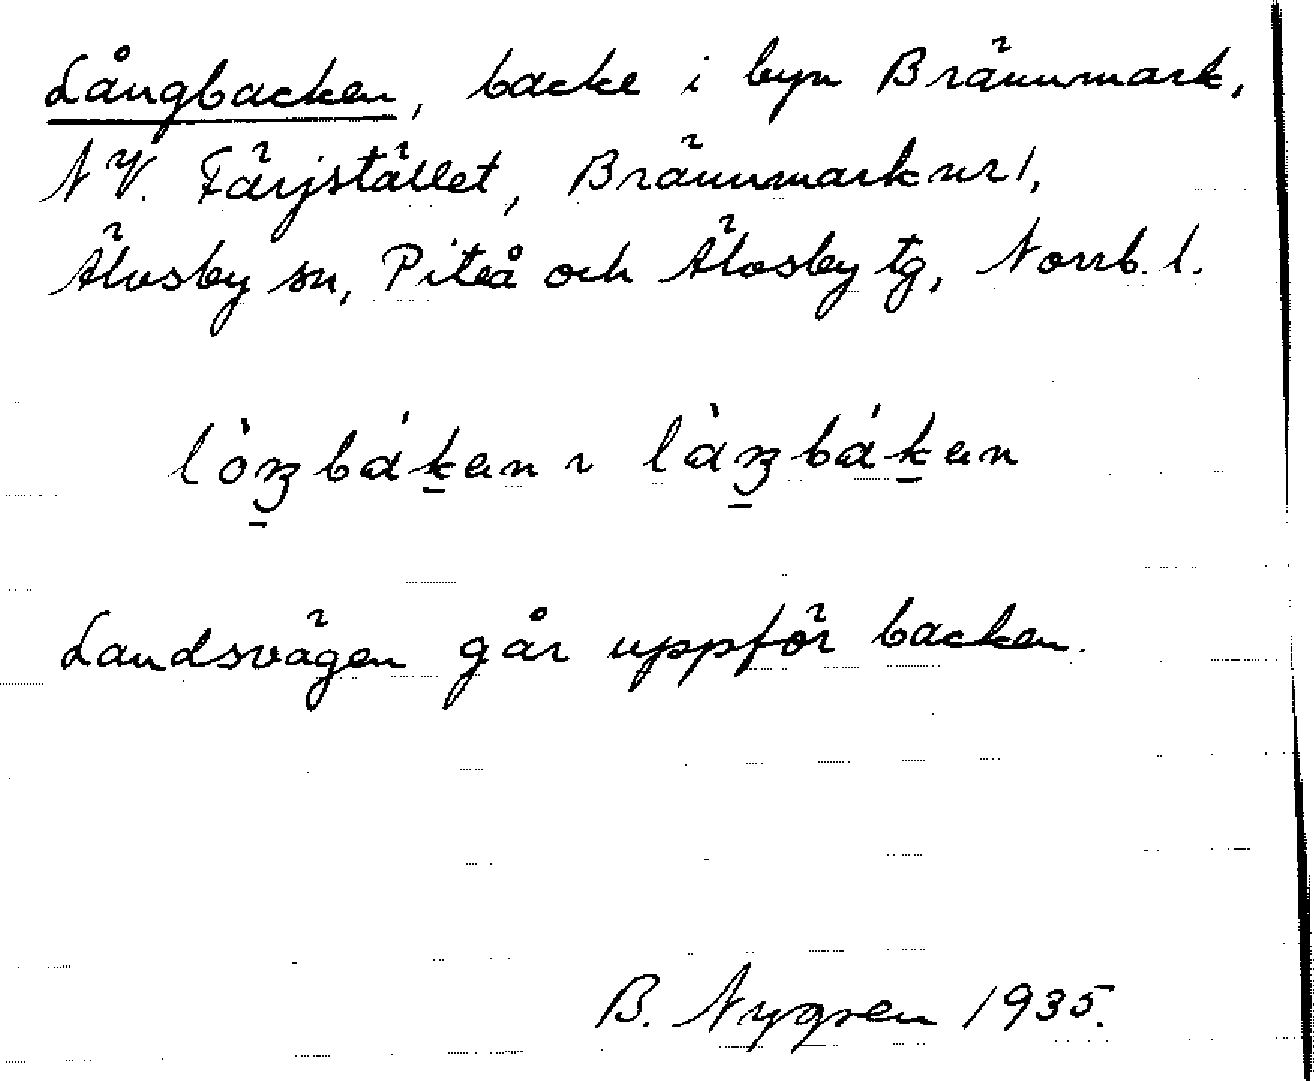 Långbacken, backe i byn Brännmark,
NV. Färjstället, Brännmark nr 1,
Älvsby sn, Piteå och Älvsby tg, Norrb. l.
Landsvägen går uppför backen.
B. Nygren 1935.